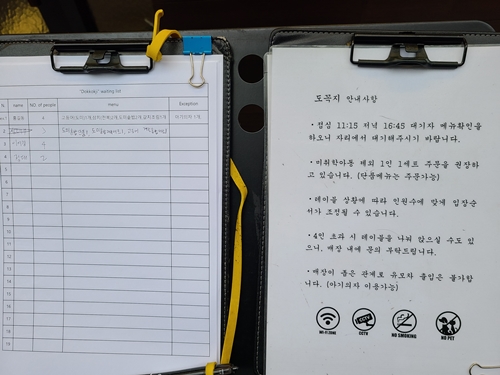 "Dokkokji" waiting list
N. name NO. of people menu Exception
1 홍길동 4
2 3
3 4
4 2
5
6
7
8
9
10
11
12
13
14
15
16
17
18
19
도꼭지 안내사항
· 점심 11:15 저녁 16:45 대기자 메뉴확인을
하오니 자리에서 대기해주시기 바랍니다.
· 미취학아동 제외 1인 1세트 주문을 권장하
고 있습니다. (단품메뉴는 주문가능)
· 테이블 상황에 따라 인원수에 맞게 입장순
서가 조정될 수 있습니다.
· 4인 초과 시 테이블을 나눠 앉으실 수도 있
으니, 매장 내에 문의 부탁드립니다.
· 매장이 좁은 관계로 유모차 출입은 불가합
니다. (아기의자 이용가능)
WI-FI ZONE CCTV NO SMOKING NO PET